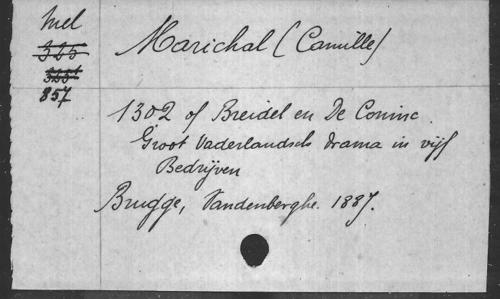 Mel
325
325¹
857
Marichal (Camille)
1302 of Breidel en De Coninc.
Groot Vaderlandsch drama in vijf
Bedrijven
Brugge, Vandenberghe. 1887.